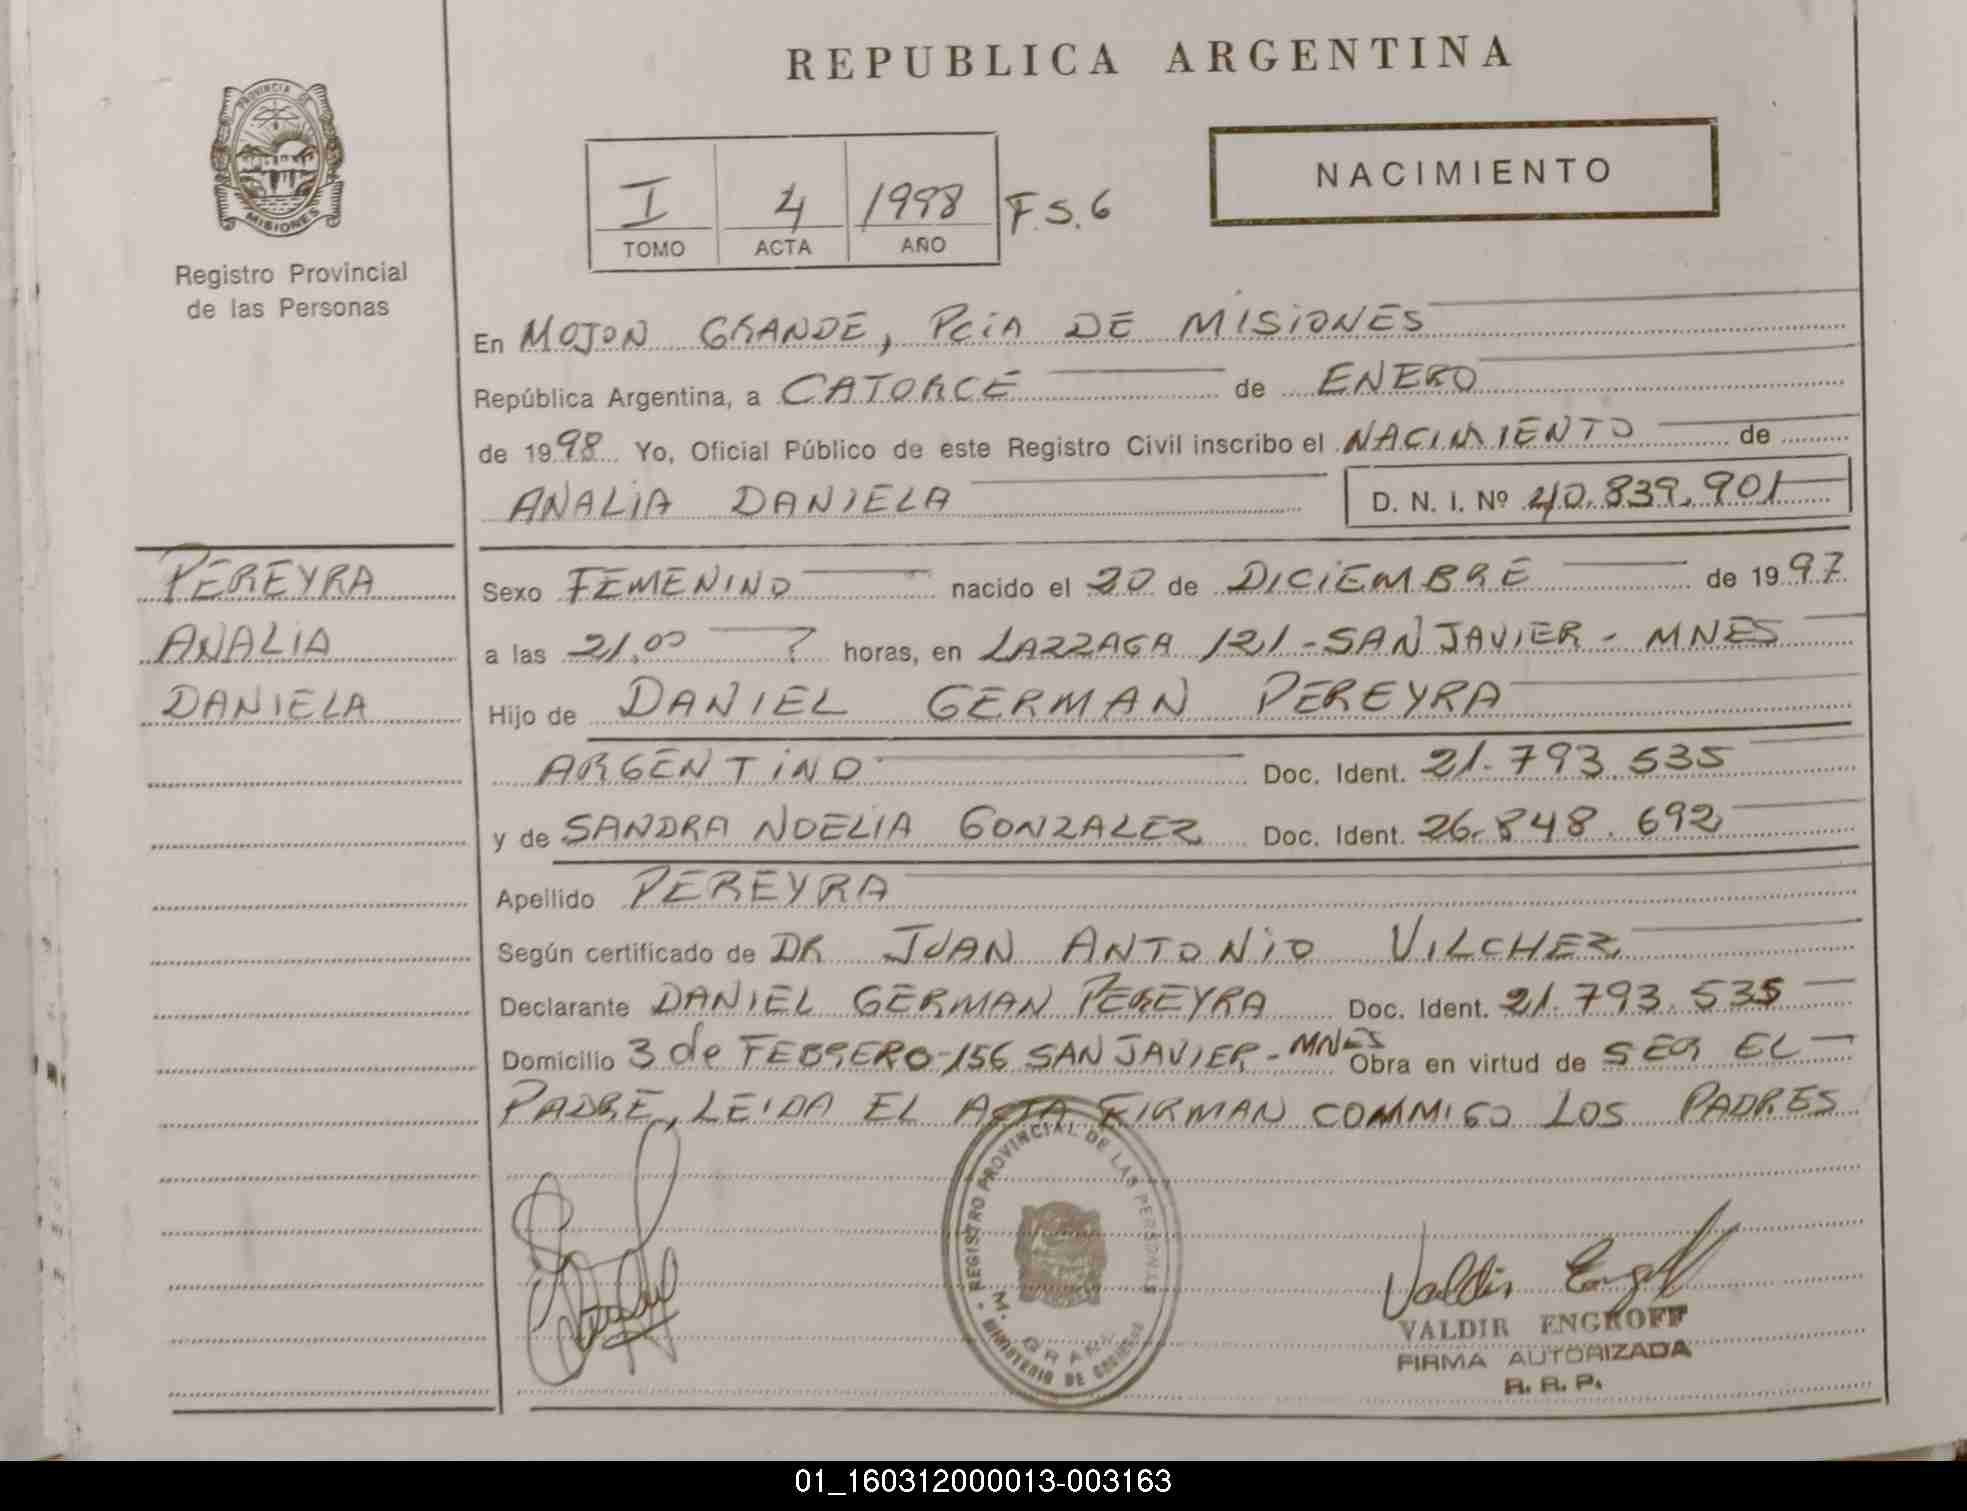 REPUBLICA ARGENTINA
PROVINCIA DE
MISIONES
Registro Provincial
de las Personas
I 4 1998 F.S.6
TOMO ACTA AÑO
NACIMIENTO
En MOJON GRANDE, PCiA DE MISIONES
República Argentina, a CATORCE de ENERO
de 1998 Yo, Oficial Público de este Registro Civil inscribo el NACIMIENTO de
ANALIA DANIELA D. N. I. Nº 40.839.901
PEREYRA
ANALIA
DANIELA
Sexo FEMENINO nacido el 20 de DICIEMBRE de 1997
a las 21,00 horas, en LAZZAGA 121-SAN JAVIER - MNES
Hijo de DANIEL GERMAN PEREYRA
ARGENTINO Doc. Ident. 21.793.535
y de SANDRA NOELIA GONZALEZ Doc. Ident. 26.848.692
Apellido PEREYRA
Según certificado de DR JUAN ANTONIO VILCHEZ
Declarante DANIEL GERMAN PEREYRA Doc. Ident. 21.793.535
Domicilio 3 de FEBRERO-156 SAN JAVIER-MNES Obra en virtud de SER EL
PADRE, LEIDA EL ACTA FIRMAN COMMIGO LOS PADRES
REGISTRO PROVINCIAL DE LAS PERSONAS
M. GRANDE
MINISTERIO DE GOBIERNO
Valdir Engroff
VALDIR ENGROFF
FIRMA AUTORIZADA
R. R. P.
01_160312000013-003163